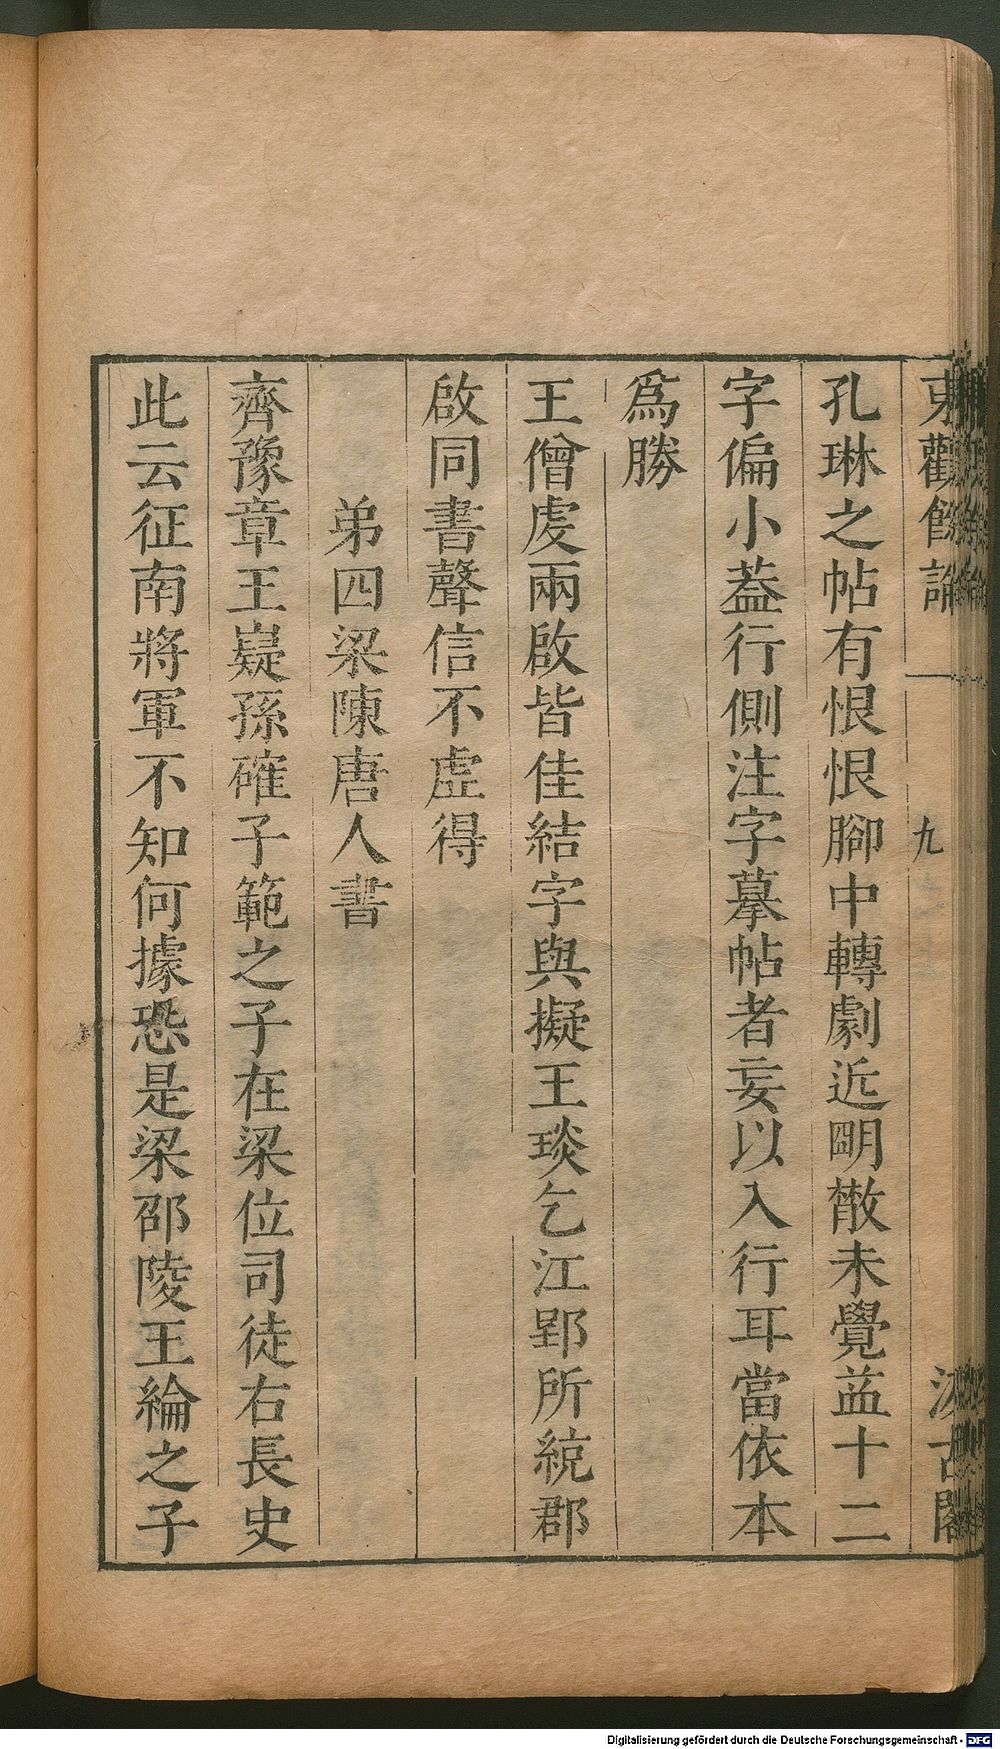 東觀餘論
一
九
汲古閣
孔琳之帖有恨恨腳中轉劇近明散未覺益十二
字偏小葢行側注字摹帖者妄以入行耳當依本
爲勝
王僧虔兩啟皆佳結字與擬王琰乞江郢所統郡
啟同書聲信不虛得
弟四梁陳唐人書
齊豫章王嶷孫確子範之子在梁位司徒右長史
此云征南將軍不知何據恐是梁邵陵王綸之子
Digitalisierung gefördert durch die Deutsche Forschungsgemeinschaft - DFG